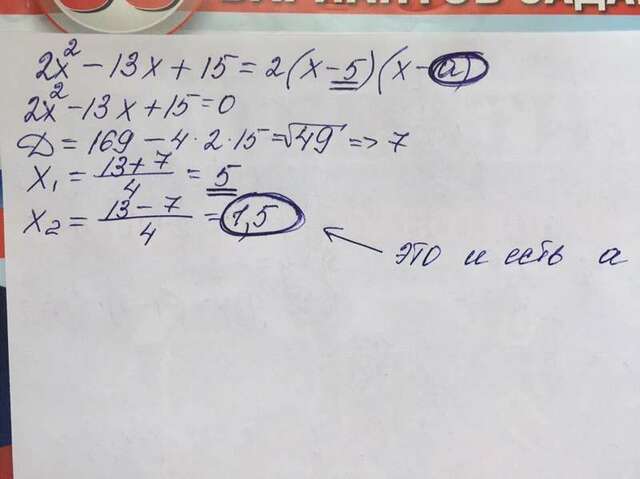 ВАРИАНТОВ ЗАДА
2x² - 13x + 15 = 2(x - 5)(x - a)
2x² - 13x + 15 = 0
Д = 169 - 4 · 2 · 15 = √49 => 7
x₁ = 13 + 7 / 4 = 5
x₂ = 13 - 7 / 4 = 1,5
это и есть а